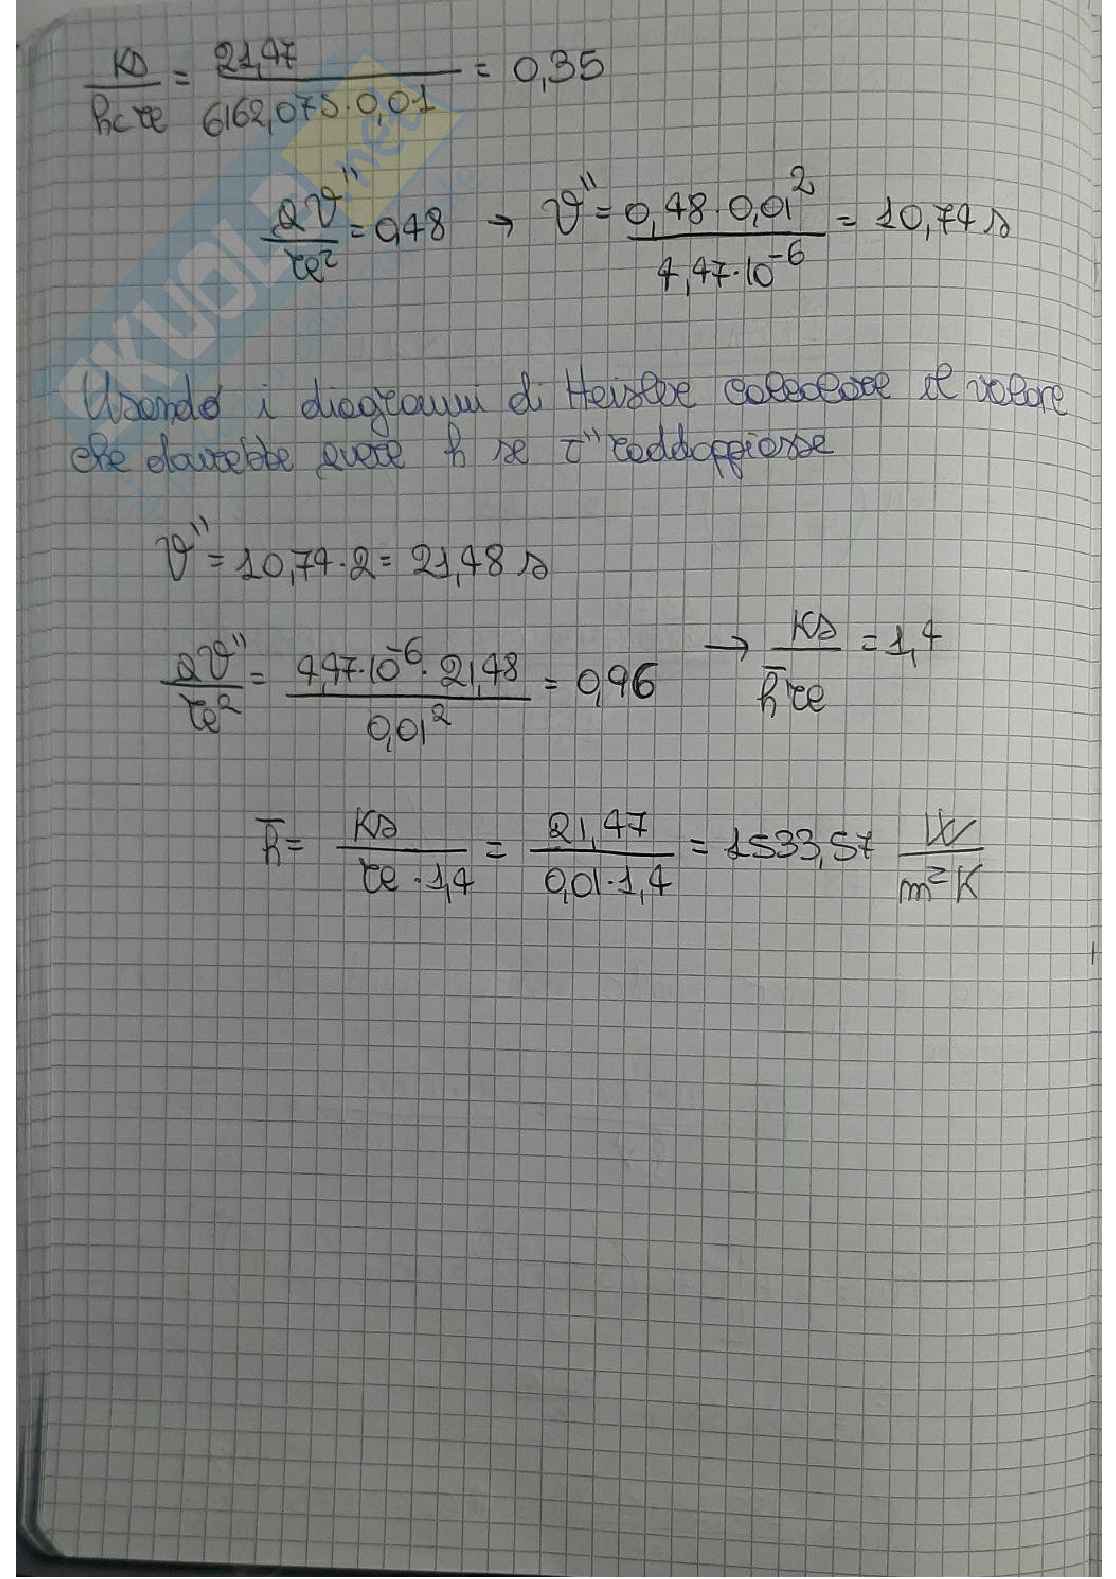 ks/(hc re) = 21,47/(6162,075·0,01) = 0,35
aϑ''/re² = 0,48 → ϑ'' = 0,48·0,01²/4,47·10⁻⁶ = 10,74 s
SKUOLA.net
Usando i diagrammi di Heisler calcolare il valore
che dovrebbe avere h se τ'' raddoppiasse
ϑ'' = 10,74·2 = 21,48 s
aϑ''/re² = 4,47·10⁻⁶·21,48/0,01² = 0,96 → ks/(h̄ re) = 1,4
h̄ = ks/(re·1,4) = 21,47/(0,01·1,4) = 1533,57 W/m²K